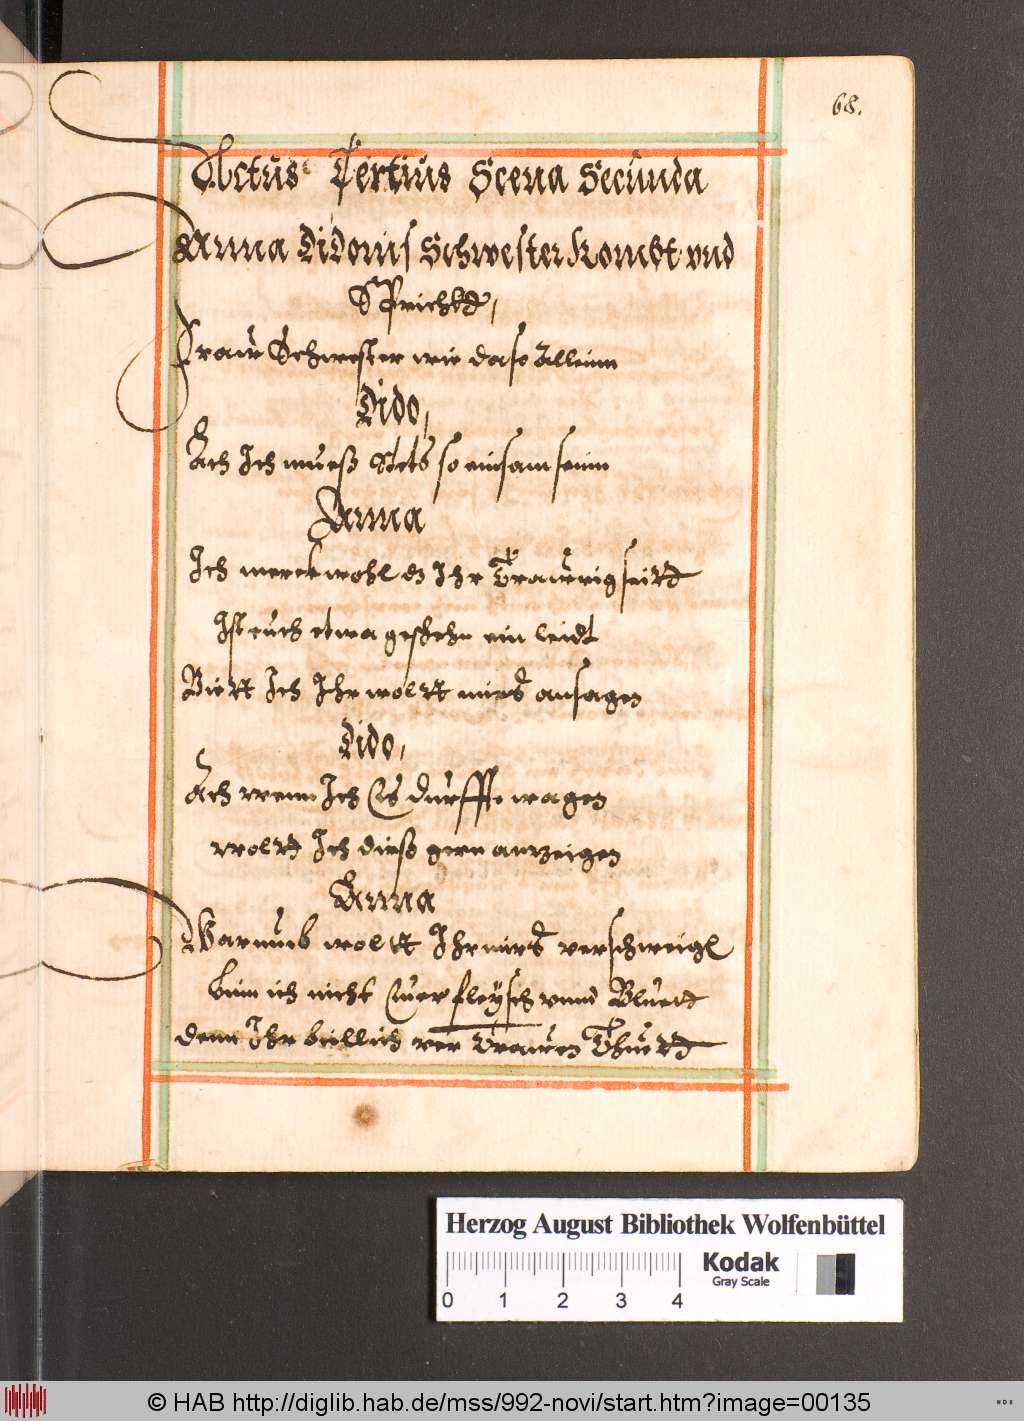 68.
Actus Tertius Scena Secunda
Anna Didonis Schwester Kombt vnd
Sprichtt,
Fraw Schwester wie da so Allein
Dido,
Ach Ich mueß Stets so einsam seinn
Anna
Ich merck wohl dz Ihr Traurrig seitt
Ist euch etwa geschehn ein leidt
Biett Ich Ihr woltt mirs ansagen
Dido,
Ach wenn Ich Es durffte wagen
woltt Ich dieß gern anzeigen
Anna
Warumb woltt Ihr mirs verschweigl
binn ich nicht Euer fleysch vnnd Bluett
denn Ihr billich ver Trauen Thuett
Herzog August Bibliothek Wolfenbüttel
0 1 2 3 4
Kodak
Gray Scale
© HAB http://diglib.hab.de/mss/992-novi/start.htm?image=00135